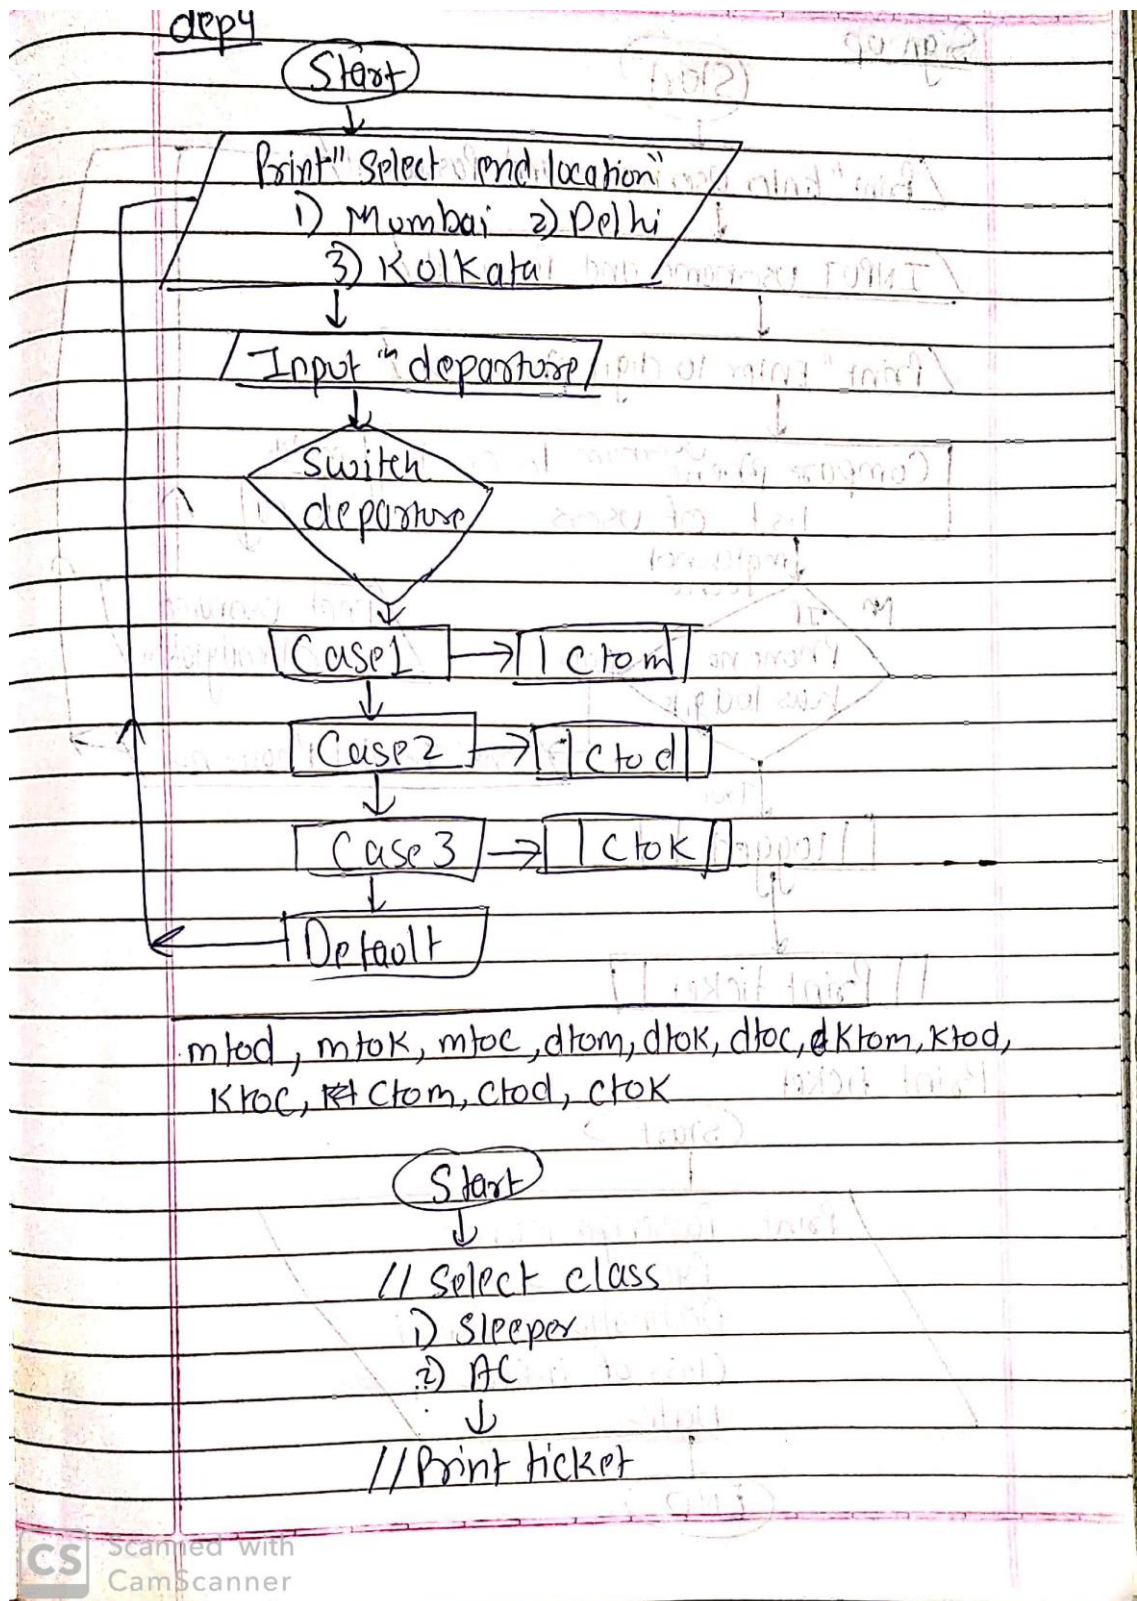 dep4
Start
Print" Select end location"
1) Mumbai 2) Delhi
3) Kolkata
Input " departure
Switch
departure
Case1
1 Ctom
Case2
Ctod
Case3
Ctok
Default
mtod, mtok, mtoc, dtom, dtok, dtoc, ktom, ktod,
Ktoc, Ctom, Ctod, ctok
Start
// Select class
1) Sleeper
2) AC
//Print ticket
CS
Scanned with
CamScanner